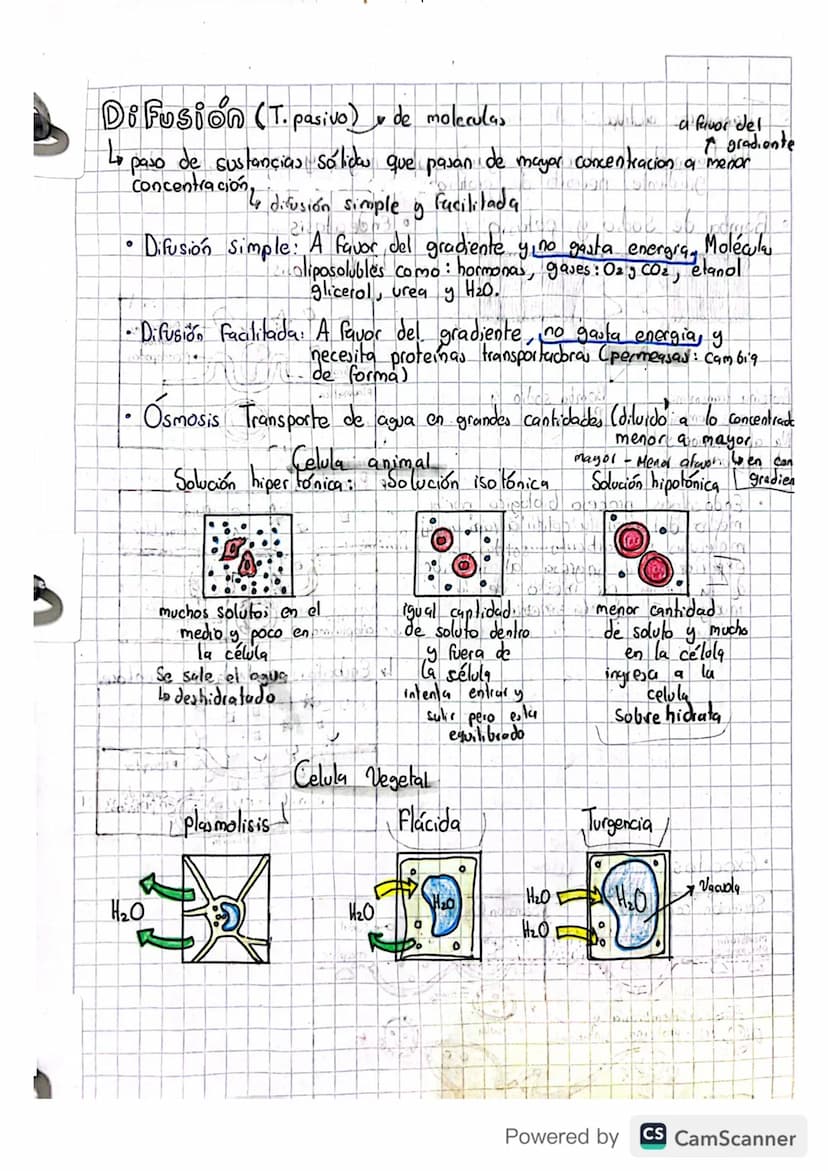 Difusión (T. pasivo) de moleculas
a favor del
gradiente
↳ paso de sustancias sólidas que pasan de mayor concentracion a menor
concentración
↳ difusión simple y facilitada
• Difusión simple: A favor del gradiente y no gasta energía, Molécula
liposolubles como: hormonas, gases: O2 y CO2, etanol
glicerol, urea y H2O.
• Difusión Facilitada: A favor del gradiente, no gasta energía, y
necesita proteinas transportadoras (permeasas: cambia
de forma)
• Ósmosis Transporte de agua en grandes cantidades (diluido a lo concentrado
menor a mayor
mayor - Menor afavor ↳ en con
gradien
Celula animal
Solución hipertónica: Solución isotónica Solución hipotónica
muchos solutos en el
medio y poco en
la célula
Se sale el agua
↳ deshidratado
igual cantidad
de soluto dentro
y fuera de
la sélula
intenta entrar y
salir pero esta
equilibrado
menor cantidad
de soluto y mucho
en la célula
ingresa a la
celula
Sobrehidrata
Celula Vegetal
Plasmolisis Flácida Turgencia
H2O
H2O
H2O
H2O
H2O
H2O
Vacuola
Powered by CS CamScanner